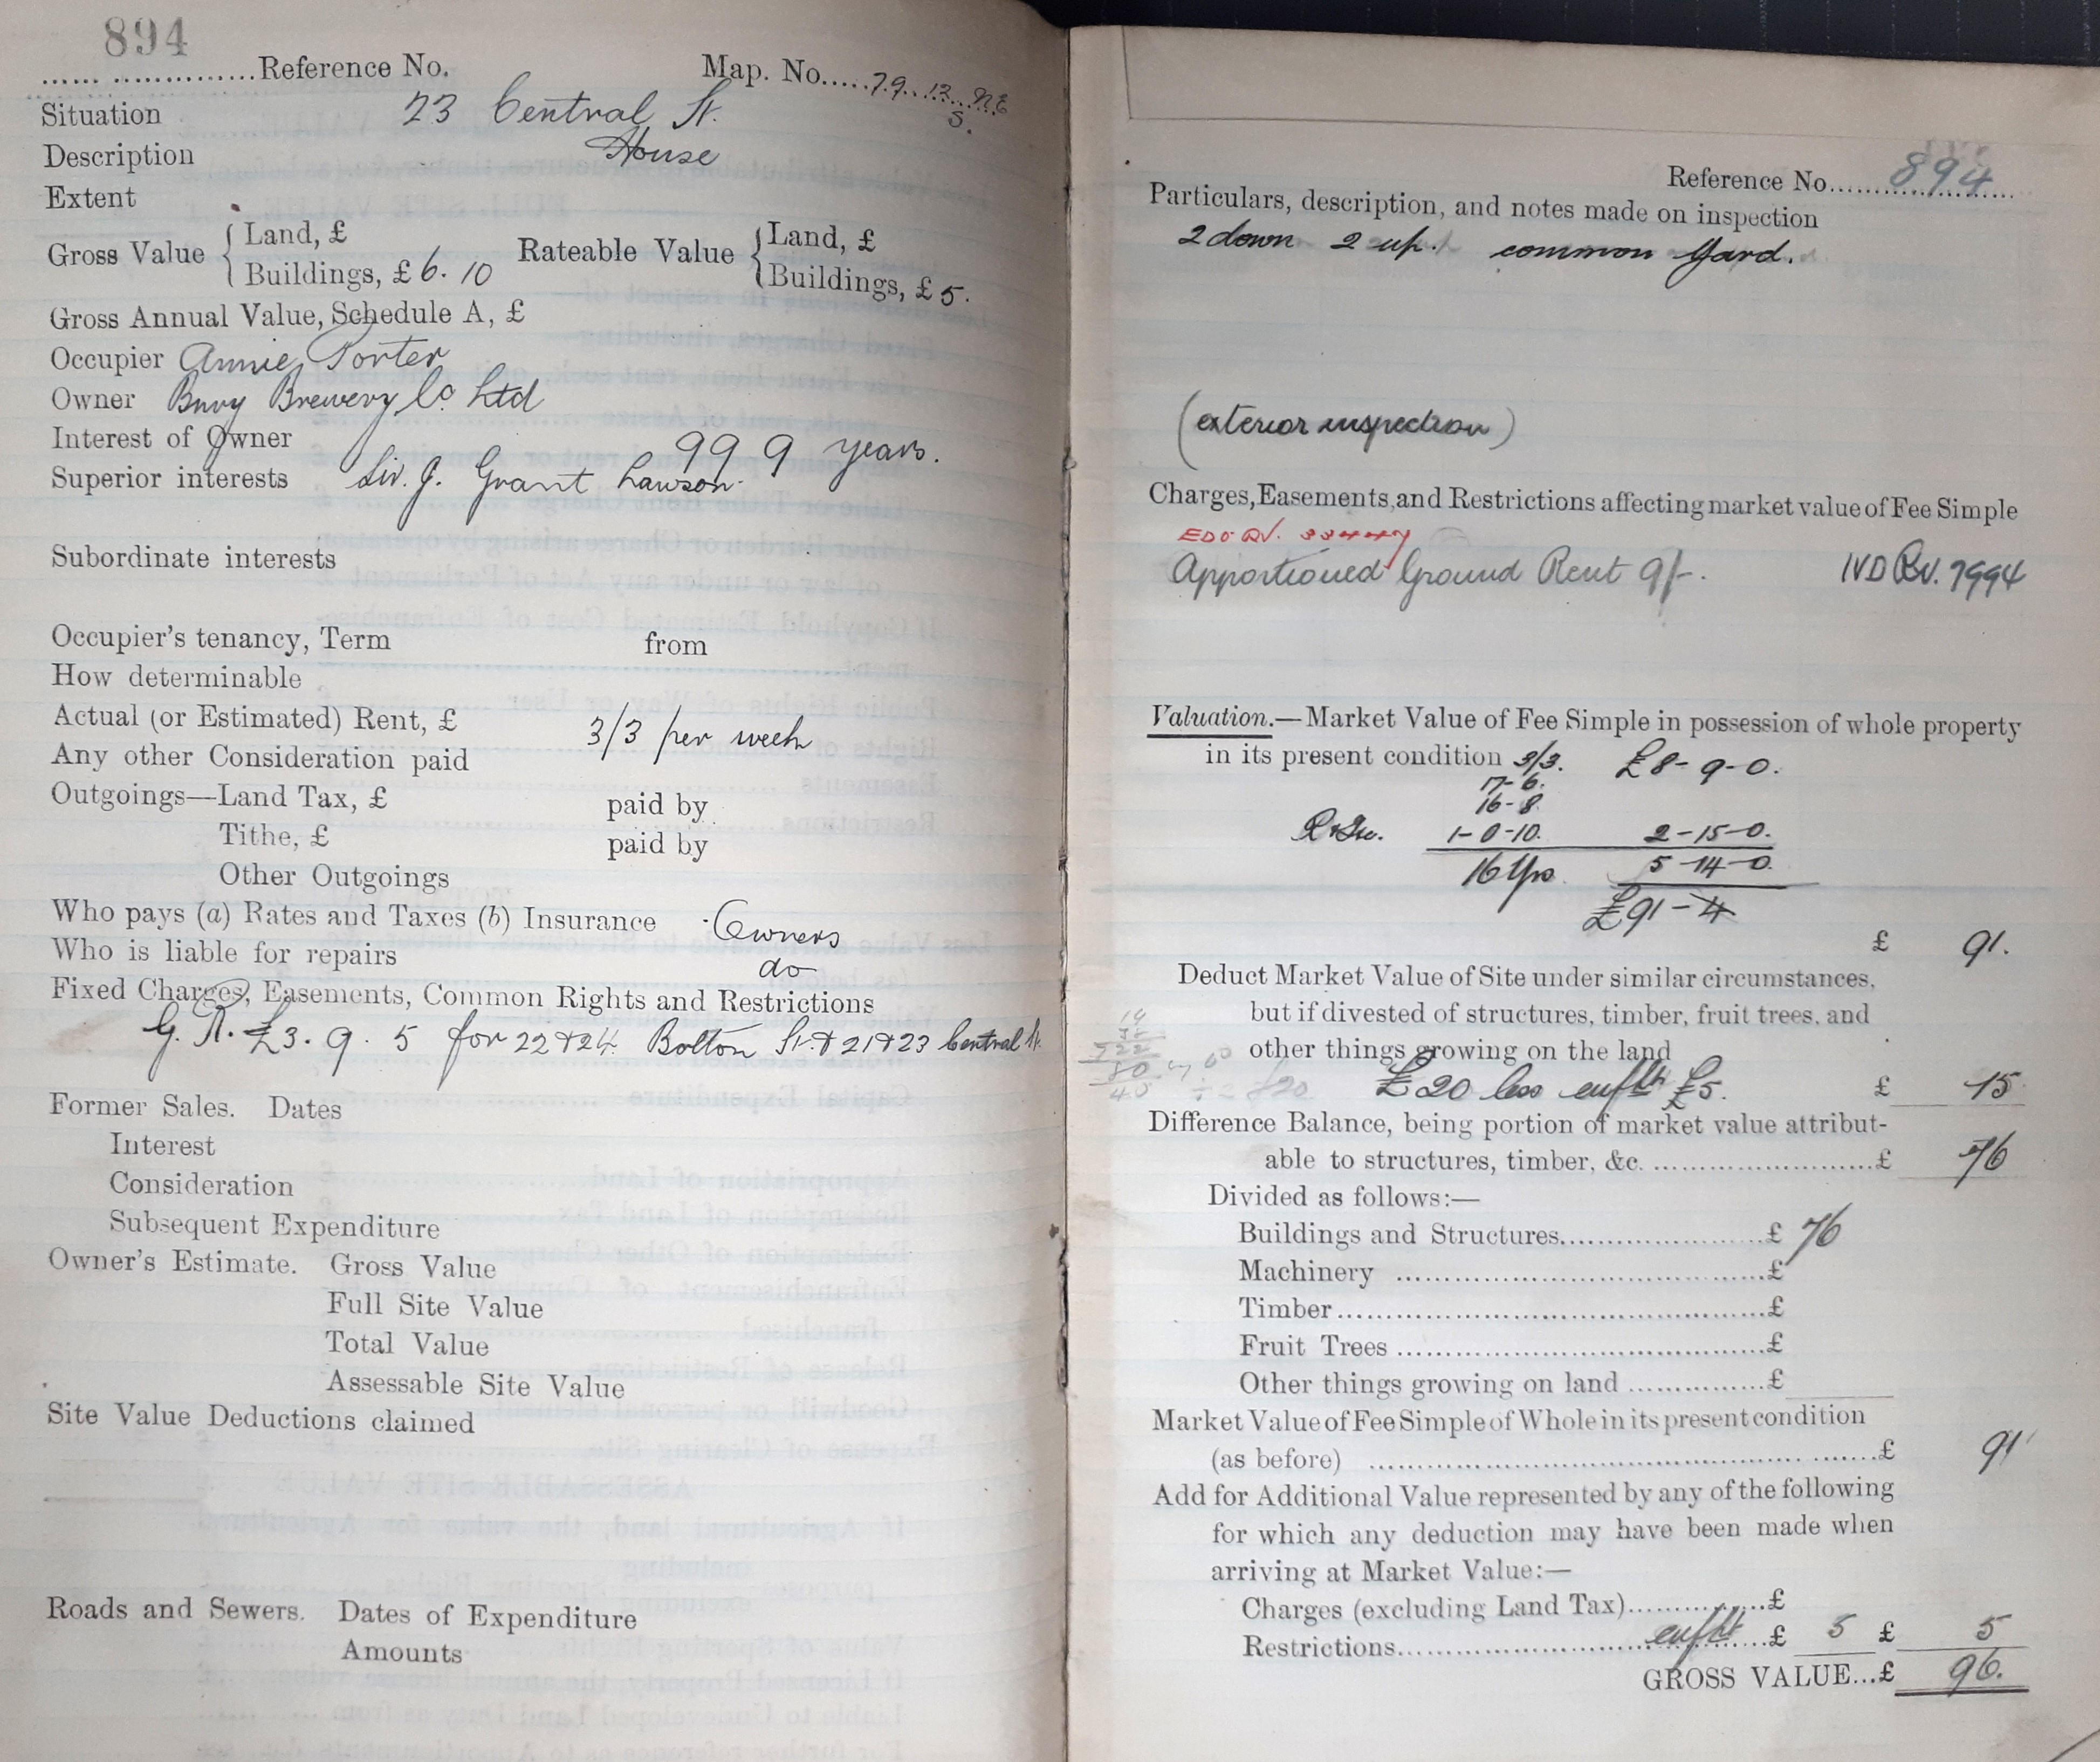 894
Reference No. Map. No. 79. 13. NE
S.
Situation 23 Central St.
Description House
Extent
Gross Value { Land, £ Rateable Value { Land, £
Buildings, £ 6. 10 Buildings, £ 5.
Gross Annual Value, Schedule A, £
Occupier Annie Porter
Owner Bury Brewery Co Ltd
Interest of Owner 999 years.
Superior interests Sir. J. Grant Lawson.
Subordinate interests
Occupier's tenancy, Term from
How determinable
Actual (or Estimated) Rent, £ 3/3 per week
Any other Consideration paid
Outgoings—Land Tax, £ paid by
Tithe, £ paid by
Other Outgoings
Who pays (a) Rates and Taxes (b) Insurance Owners
Who is liable for repairs do
Fixed Charges, Easements, Common Rights and Restrictions
G. R. £3. 9. 5 for 22 & 24 Bolton St. & 21 & 23 Central St.
Former Sales. Dates
Interest
Consideration
Subsequent Expenditure
Owner's Estimate. Gross Value
Full Site Value
Total Value
Assessable Site Value
Site Value Deductions claimed
Roads and Sewers. Dates of Expenditure
Amounts
Reference No. 894
Particulars, description, and notes made on inspection
2 down 2 up. common yard.
(exterior inspection)
Charges, Easements, and Restrictions affecting market value of Fee Simple
Apportioned Ground Rent 9/-. IVD Rv. 7994
Valuation.—Market Value of Fee Simple in possession of whole property
in its present condition 3/3. £8-9-0.
17-6.
16-8
1-0-10. 2-15-0.
16 Yrs 5-14-0.
£91-4
£ 91.
Deduct Market Value of Site under similar circumstances,
but if divested of structures, timber, fruit trees, and
other things growing on the land
£20 less enfht £5. £ 15
Difference Balance, being portion of market value attribut-
able to structures, timber, &c. £ 76
Divided as follows:—
Buildings and Structures £ 76
Machinery £
Timber £
Fruit Trees £
Other things growing on land £
Market Value of Fee Simple of Whole in its present condition
(as before) £ 91
Add for Additional Value represented by any of the following
for which any deduction may have been made when
arriving at Market Value:—
Charges (excluding Land Tax) £
Restrictions enfht £ 5 £ 5
GROSS VALUE...£ 96.